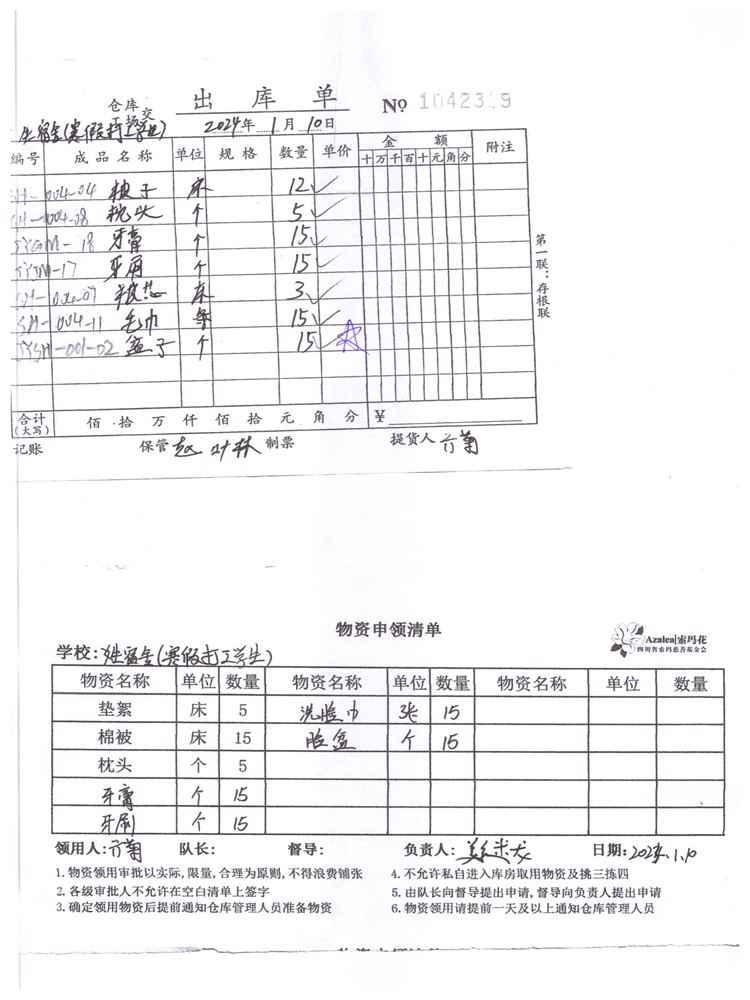 出 库 单
仓库
交
No 1042319
宿舍(寒假打工学生) 2024年 1月 10日
编号 成品名称 单位 规格 数量 单价 金额 附注
十 万 千 百 十 元 角 分
004-04 被子 床 12 ✓
004-08 枕头 个 5 ✓
-18 牙膏 个 15 ✓
-17 牙刷 个 15 ✓
004-07 床 3 ✓
SH-004-11 毛巾 条 15 ✓
-001-02 盆子 个 15 ✓
第一联：存根联
合计(大写) 佰 拾 万 仟 佰 拾 元 角 分 ¥
记账 保管 赵 林 制票 提货人
物资申领清单
Azalea|索玛花
四川省索玛慈善基金会
学校: 宿舍(寒假打工学生)
物资名称 单位 数量 物资名称 单位 数量 物资名称 单位 数量
垫絮 床 5 洗脸巾 张 15
棉被 床 15 脸盆 个 15
枕头 个 5
牙膏 个 15
牙刷 个 15
领用人: 队长: 督导: 负责人: 日期: 2024.1.10
1. 物资领用审批以实际, 限量, 合理为原则, 不得浪费铺张 4. 不允许私自进入库房取用物资及挑三拣四
2. 各级审批人不允许在空白清单上签字 5. 由队长向督导提出申请, 督导向负责人提出申请
3. 确定领用物资后提前通知仓库管理人员准备物资 6. 物资领用请提前一天及以上通知仓库管理人员